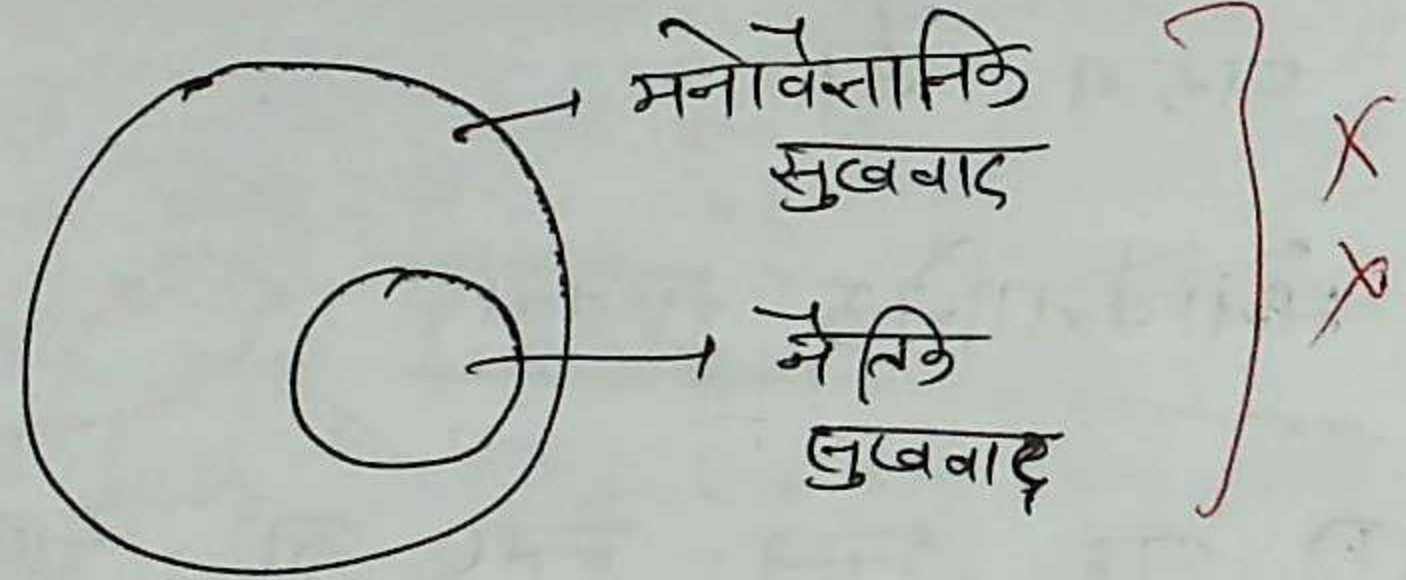 मनोवैज्ञानिक
सुखवाद
नैतिक
सुखवाद